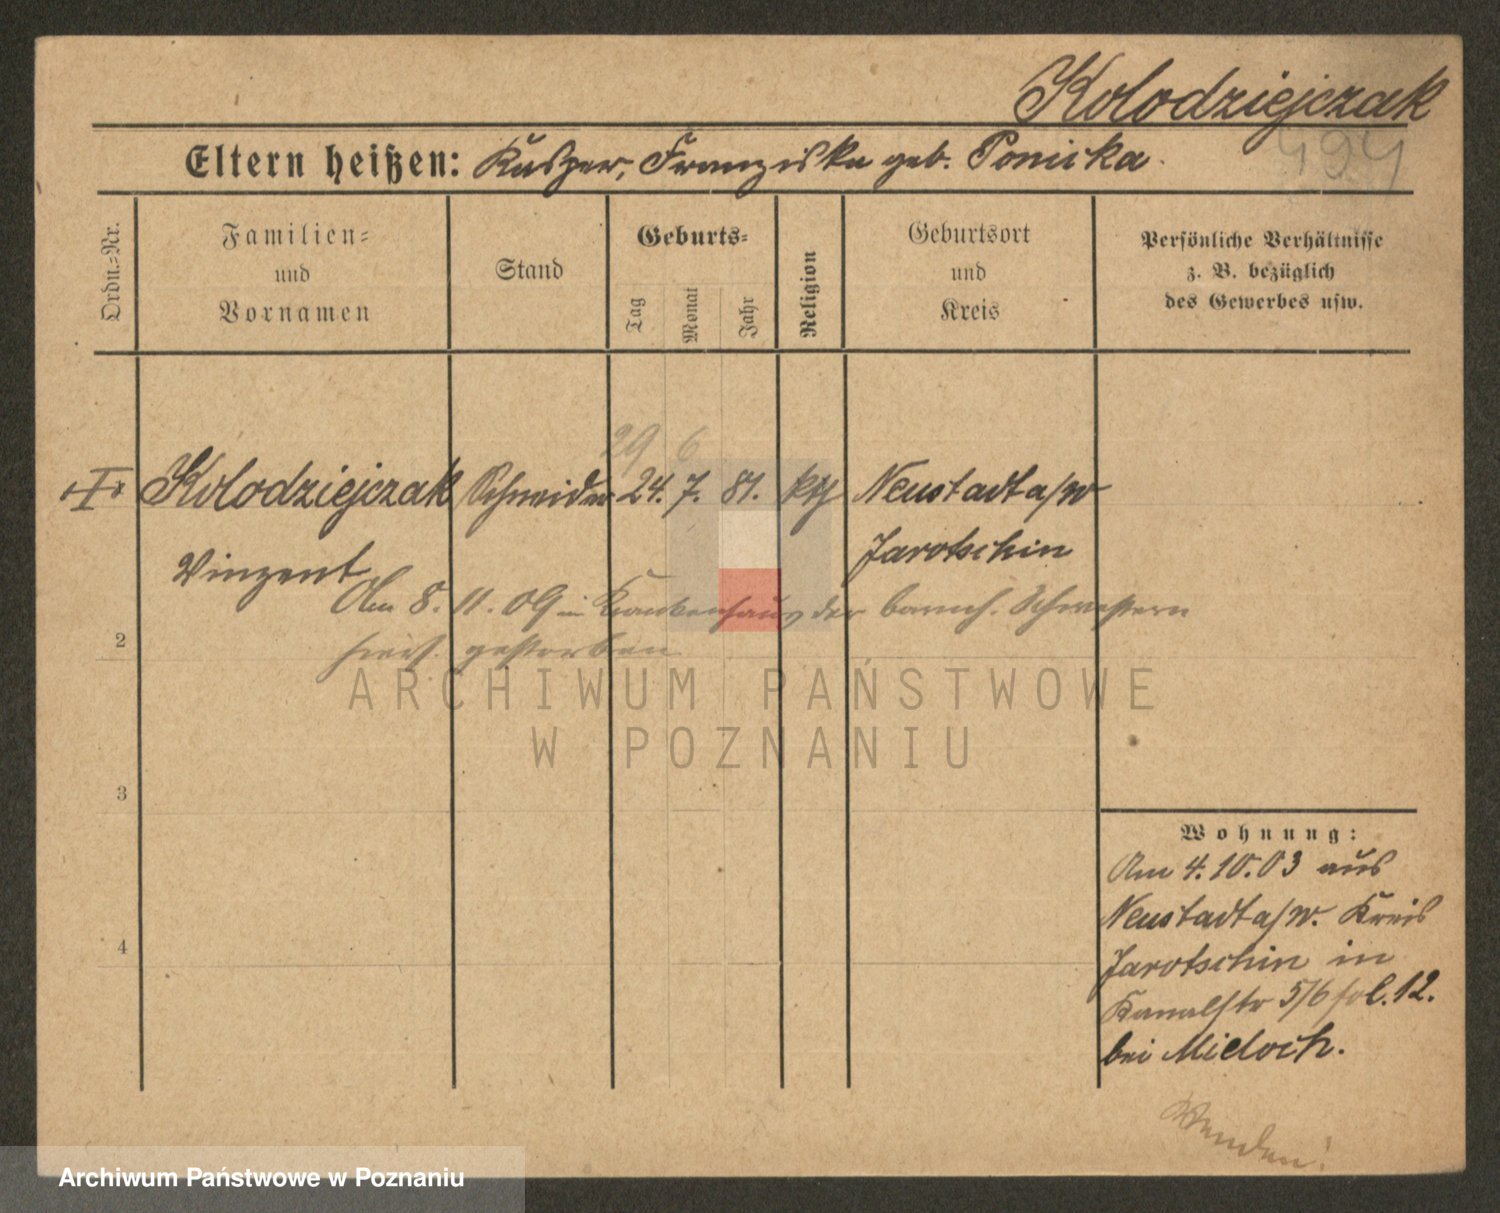 Kolodziejczak
494
Eltern heißen: Kasper, Franziska geb. Ponicka.
Ordn.=Nr.
Familien= und Vornamen
Stand
Geburts=
Tag
Monat
Jahr
Religion
Geburtsort und Kreis
Persönliche Verhältnisse
z. B. bezüglich
des Gewerbes usw.
29 6
I Kolodziejczak Schneider 24. 7. 81. kth Neustadt a/W
Vinzent Jarotschin
Am 8. 11. 09 in Krankenhaus der barmh. Schwestern
2
hier. gestorben
ARCHIWUM PAŃSTWOWE
W POZNANIU
3
Wohnung:
Am 4. 10. 03 aus
Neustadt a/W. Kreis
4
Jarotschin in
Kanalstr 5/6 fol. 12.
bei Mieloch.
Wenden!
Archiwum Państwowe w Poznaniu